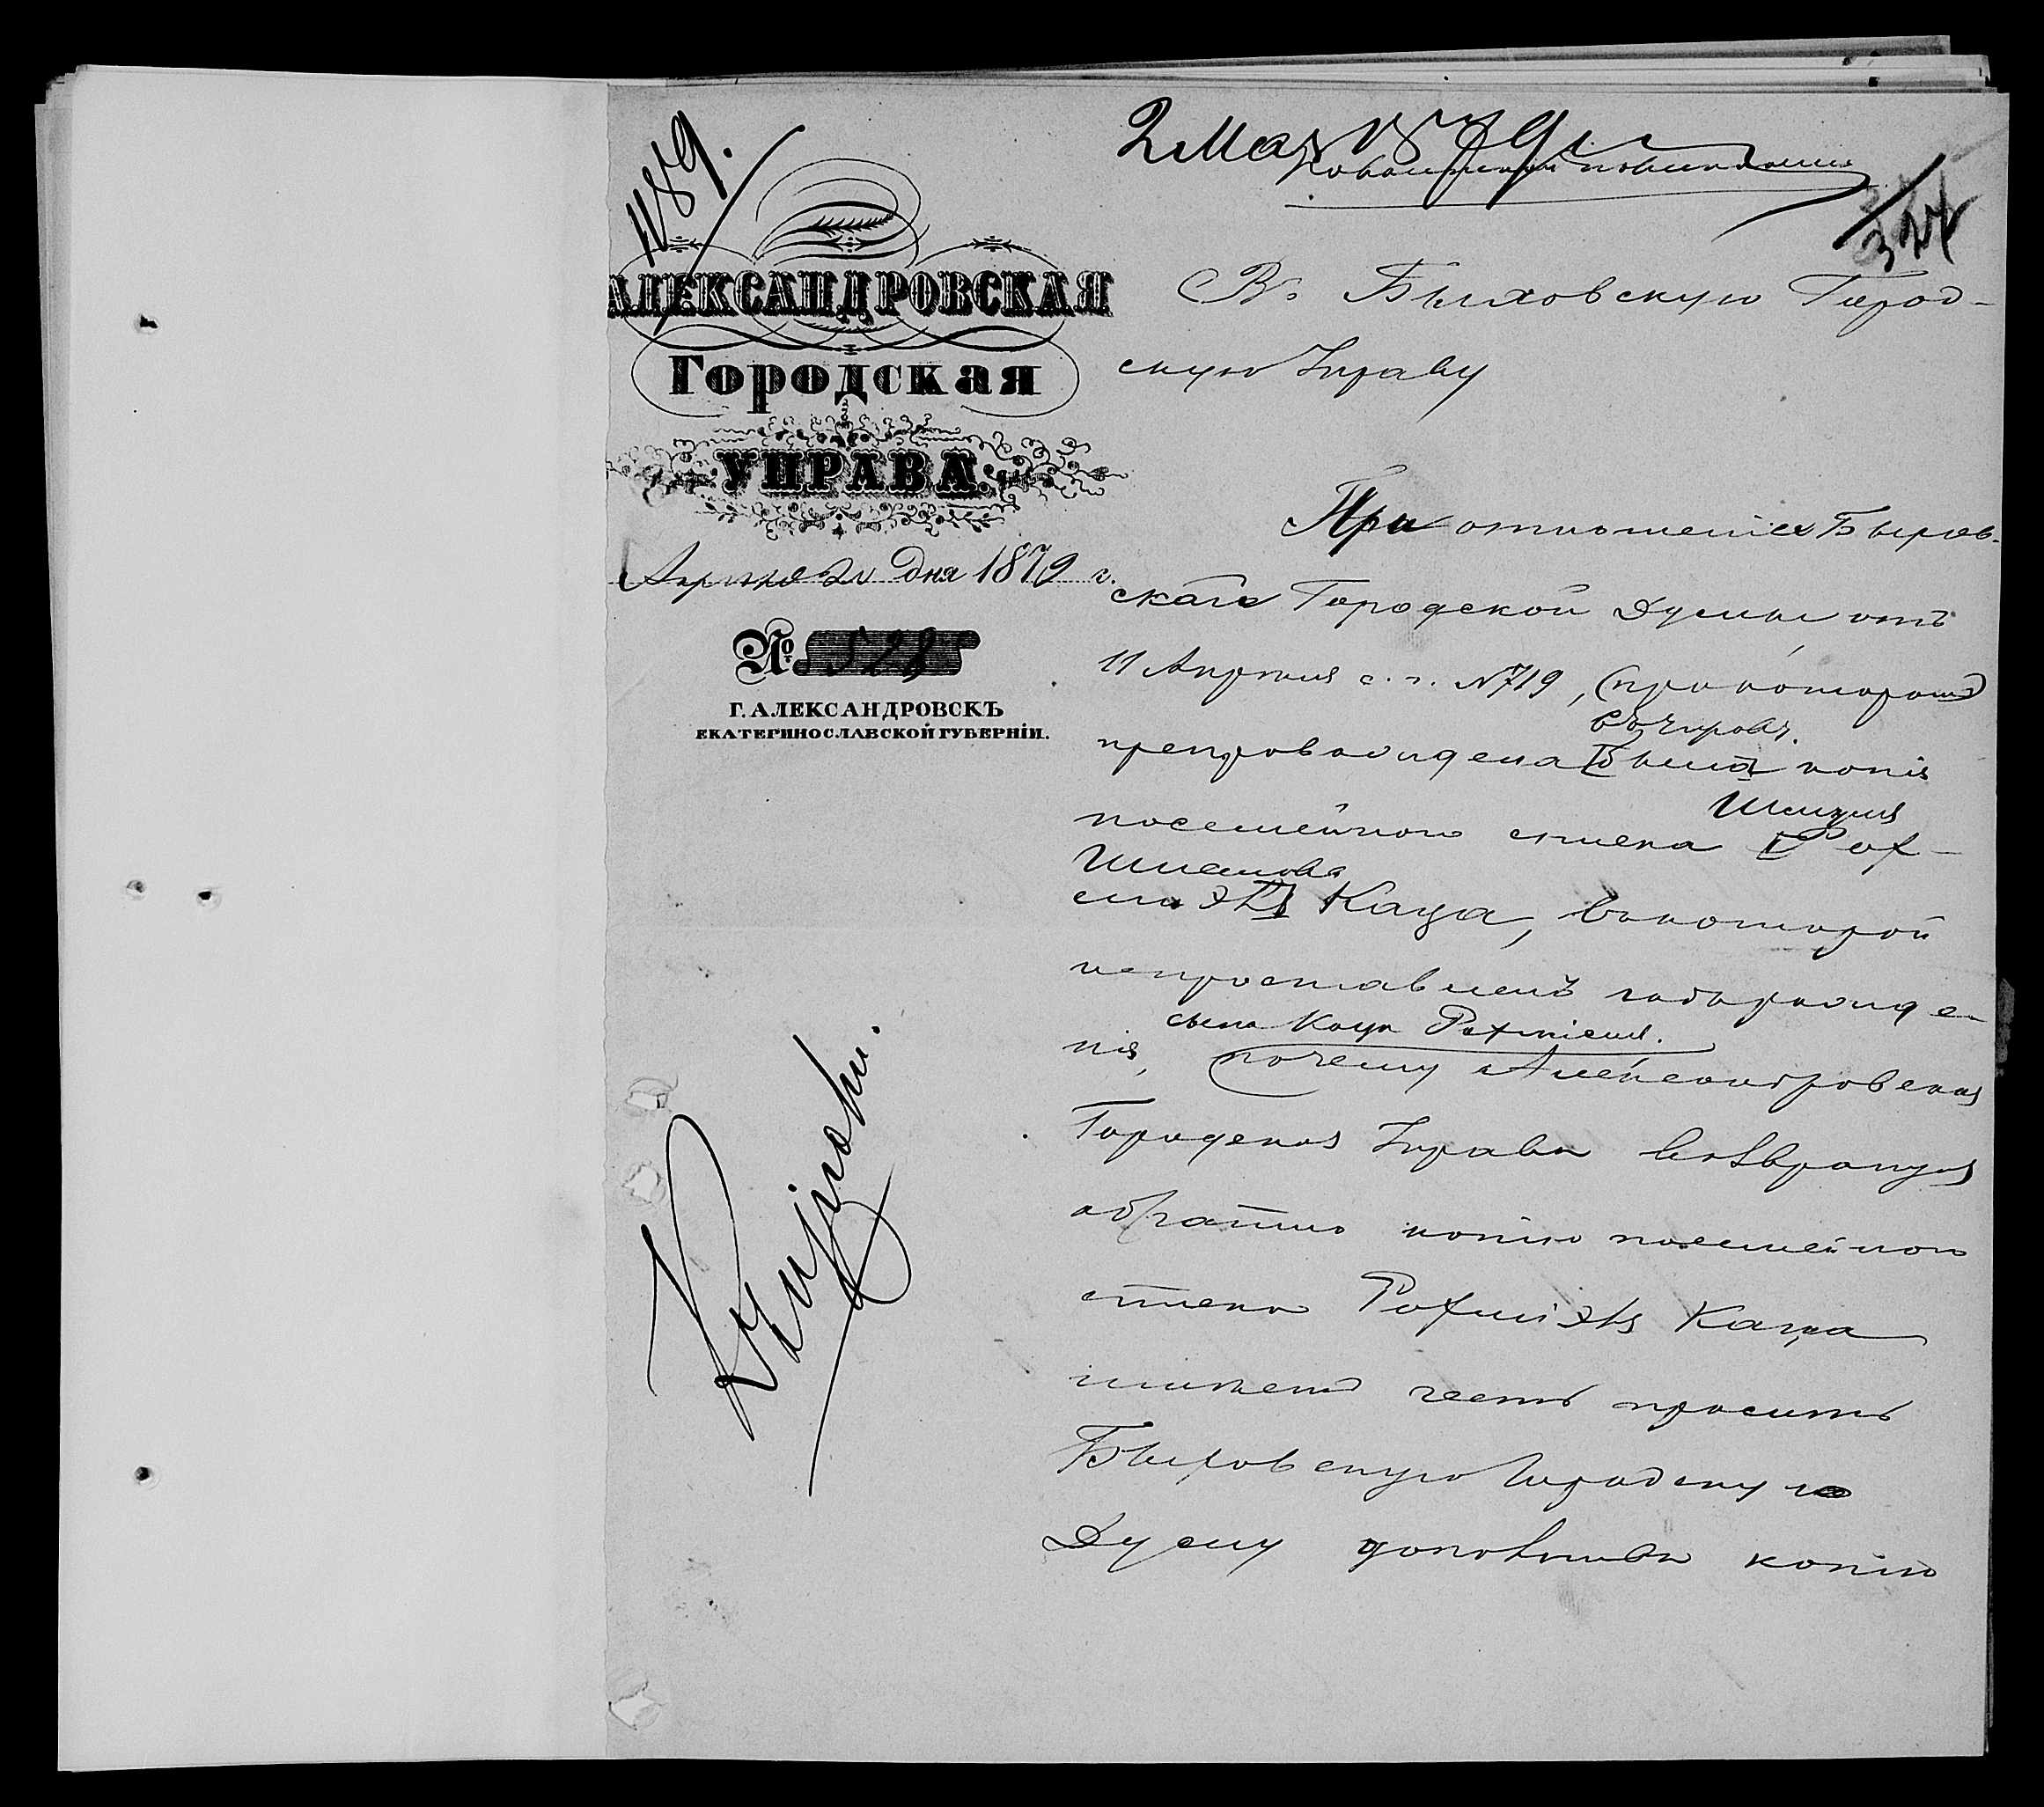 1189.
2 Мая 1879 г.
АЛЕКСАНДРОВСКАЯ
Городская
УПРАВА.
Апреля 21 Дня 1879 г.
№ 528
Г. АЛЕКСАНДРОВСКЪ
ЕКАТЕРИНОСЛАВСКОЙ ГУБЕРНІИ.
Въ Быховскую Город-
скую Управу
При отношеніи Быхов-
ской Городской Думы отъ
11 Апреля с. г. № 719, (при которомъ
препровождена была копія
посемейнаго списка Роф-
Шмуля
Каца, въ которой
непроставленъ годъ рожде-
сына Каца
нія, почему Александровская
Городская Управа возвращая
обратно копію посемейного
списка Каца
имѣетъ честь просить
Быховскую Городскую
Думу копію